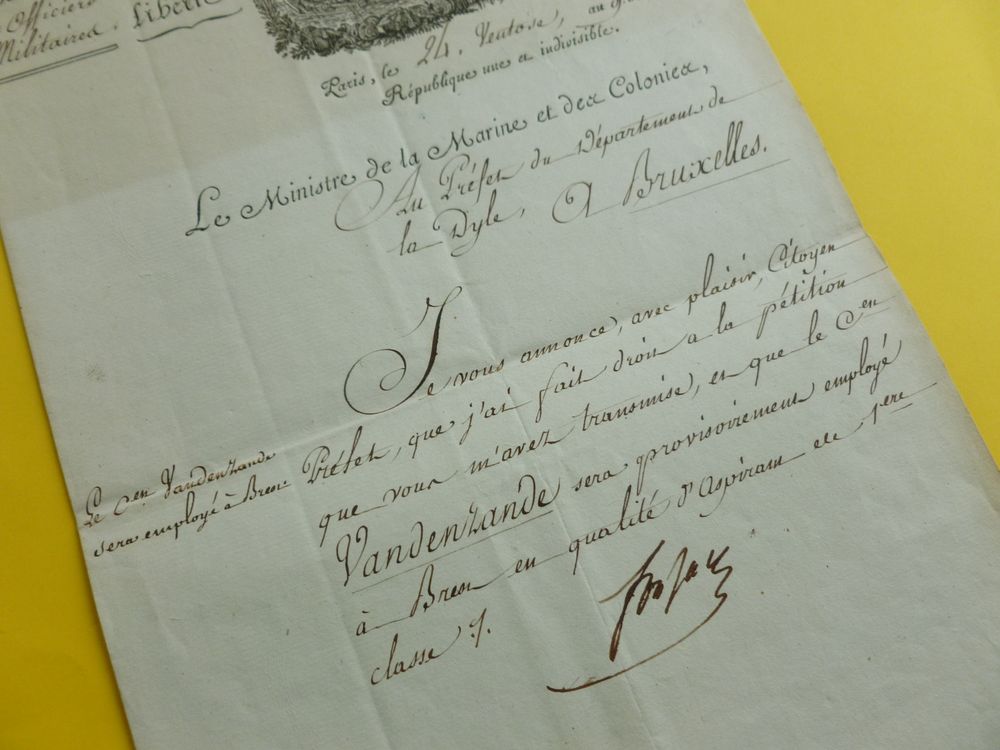 Officiers
Militaires.
Liberté
Paris, le 24. Ventose, au 9.
République une et indivisible.
Le Ministre de la Marine et des Colonies,
Au Préfet du Département de
la Dyle, A Bruxelles.
Je vous annonce, avec plaisir, Citoyen
Préfet, que j'ai fait droit a la pétition
que vous m'avez transmise, et que le Cen
Vandenzande sera provisoirement employé
à Brest en qualité d'Aspirant de 1ere
classe /.
Le Cen Vandenzande
sera employé à Brest